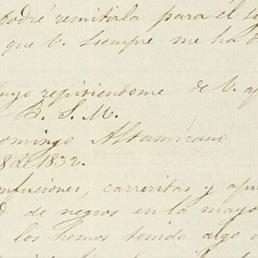 podré remitirla para el
que V. siempre me ha
repitiendome de V.
B. S. M.
Domingo Altamirano
8 de 1832.
confusiones, carreritas y
de negros en la mayo
los hemos tenido algo